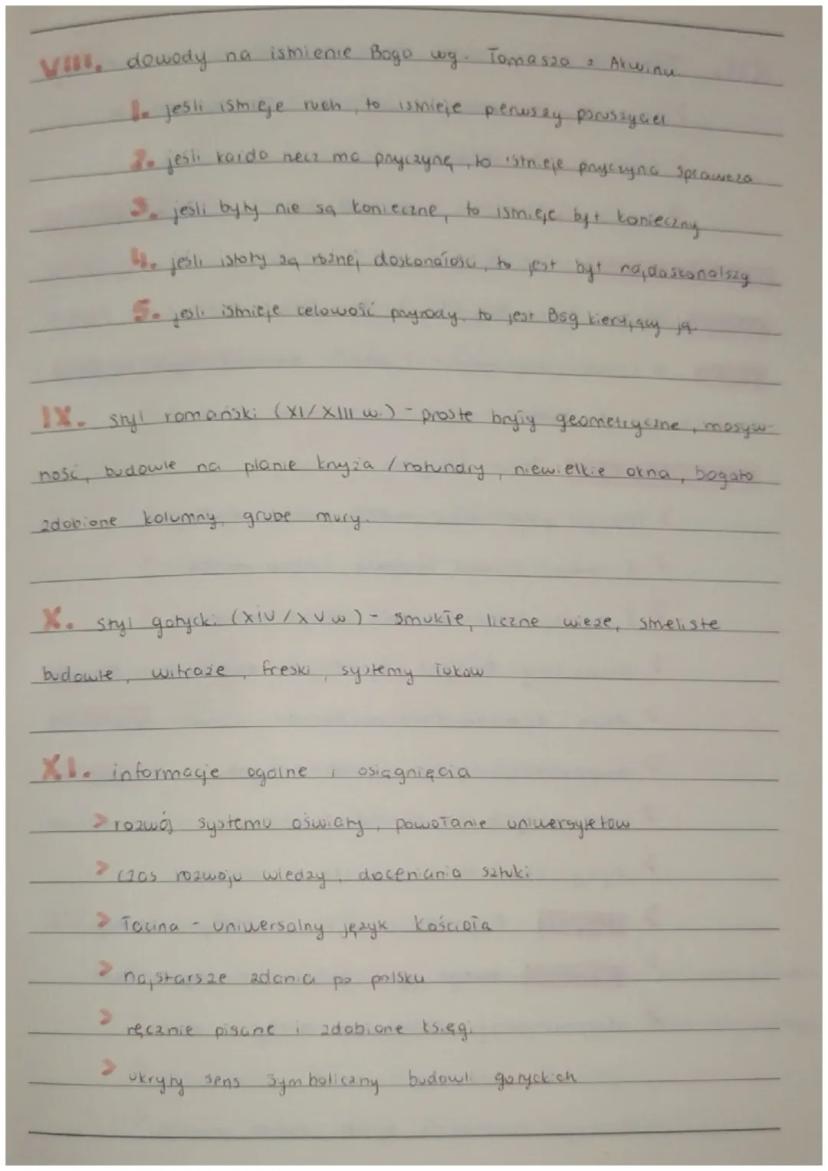 VIII. dowody na istnienie Boga wg. Tomasza z Akwinu
1. jeśli istnieje ruch, to istnieje pierwszy poruszyciel
2. jeśli każda rzecz ma przyczynę, to istnieje przyczyna sprawcza
3. jeśli byty nie są konieczne, to istnieje byt konieczny
4. jeśli istoty są różnej doskonałości, to jest byt najdoskonalszy
5. jeśli istnieje celowość przyrody, to jest Bóg kierujący ją.
IX. styl romański (XI/XIII w.) - proste bryły geometryczne, masyw-
ność, budowle na planie krzyża / rotundy, niewielkie okna, bogato
zdobione kolumny, grube mury.
X. styl gotycki (XIV/XV w) - smukłe, liczne wieże, strzeliste
budowle, witraże, freski, systemy łuków
XI. informacje ogólne i osiągnięcia
> rozwój systemu oświaty, powołanie uniwersytetów
> czas rozwoju wiedzy, doceniania sztuki
> łacina - uniwersalny język Kościoła
> najstarsze zdania po polsku
> ręcznie pisane i zdobione księgi
> ukryty sens symboliczny budowli gotyckich